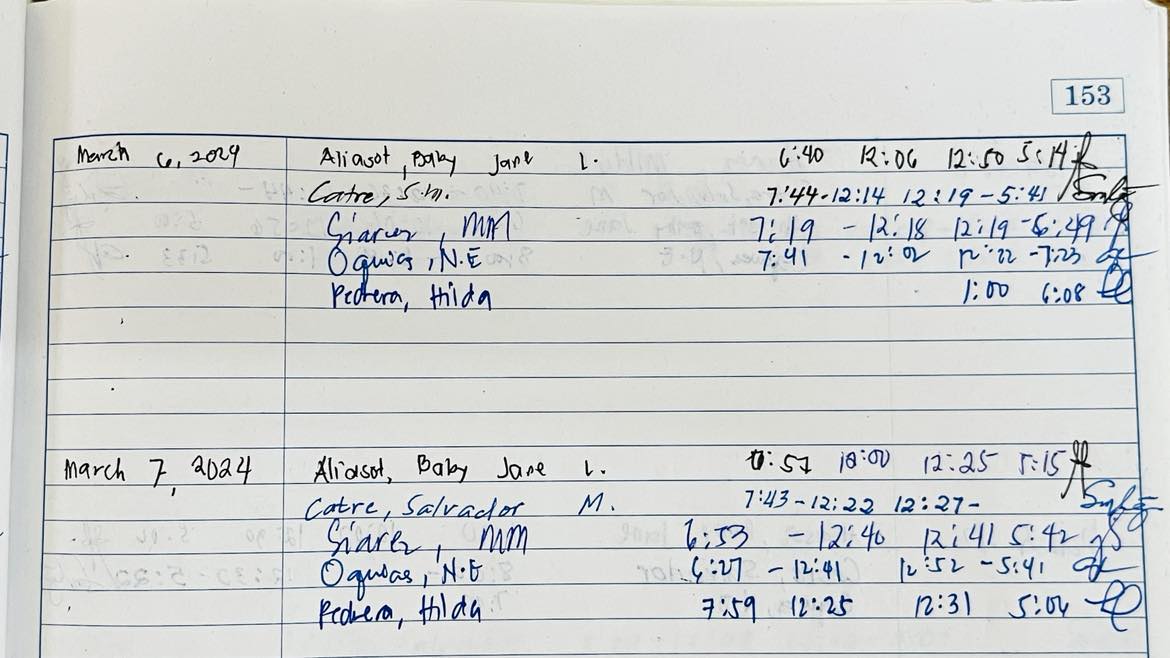 153
March 6, 2024 Aliasot, Baby Jane L. 6:40 12:06 12:50 5:14
Catre, S.M. 7:44-12:14 12:19-5:41
Siarez, MM 7:19 - 12:18 12:19-5:49
Oguias, N.E 7:41 - 12:02 12:22-7:23
Pedrera, Hilda 1:00 6:08
March 7, 2024 Aliasot, Baby Jane L. 12:25 5:15
Catre, Salvador M. 7:43-12:22 12:27-
Siarez, MM 6:53 - 12:40 12:41 5:42
Oguias, N.E 6:27 - 12:41 12:52 - 5:41
Pedrera, Hilda 7:59 12:25 12:31 5:04